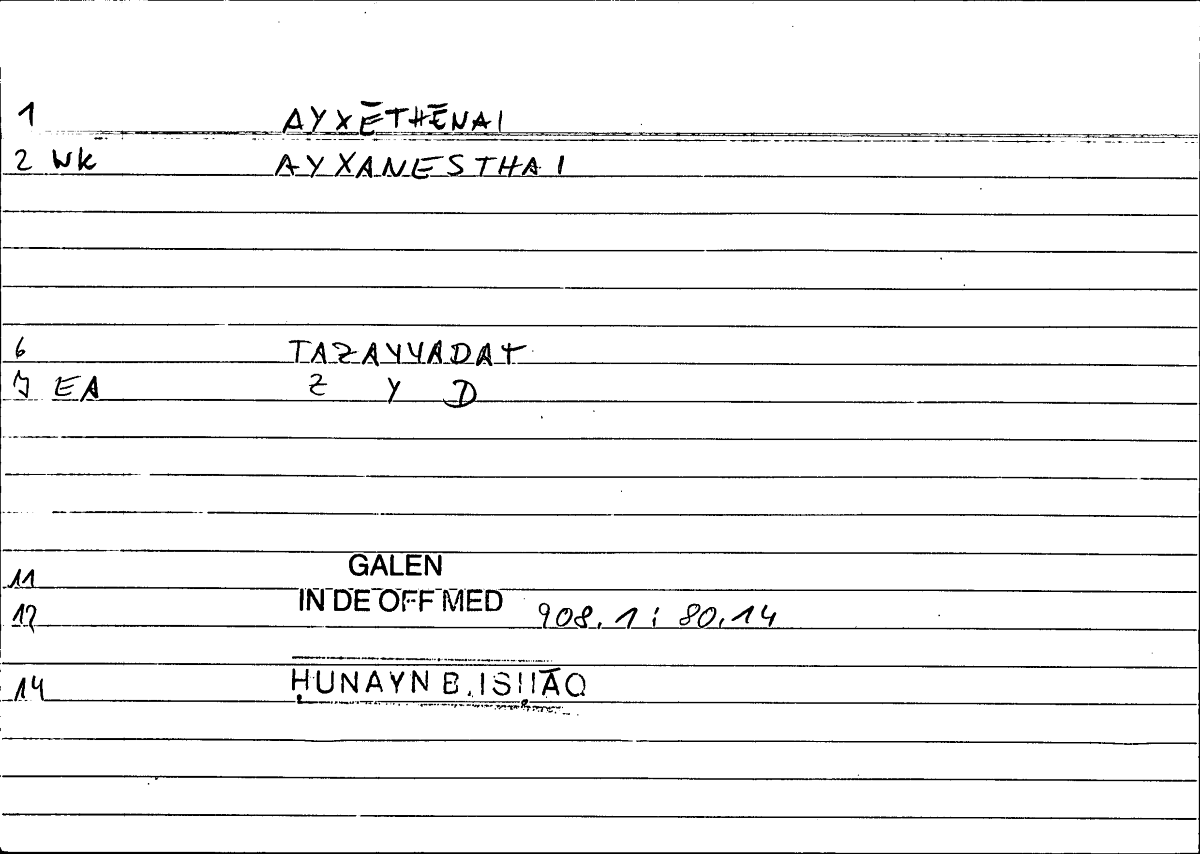 1 AYXĒTHĒNAI
2 WK AYXANESTHAI
6 TAZAYYADAT
7 EA Z Y D
11 GALEN
12 IN DE OFF MED 908.1; 80.14
14 ḤUNAYN B. ISḤĀQ